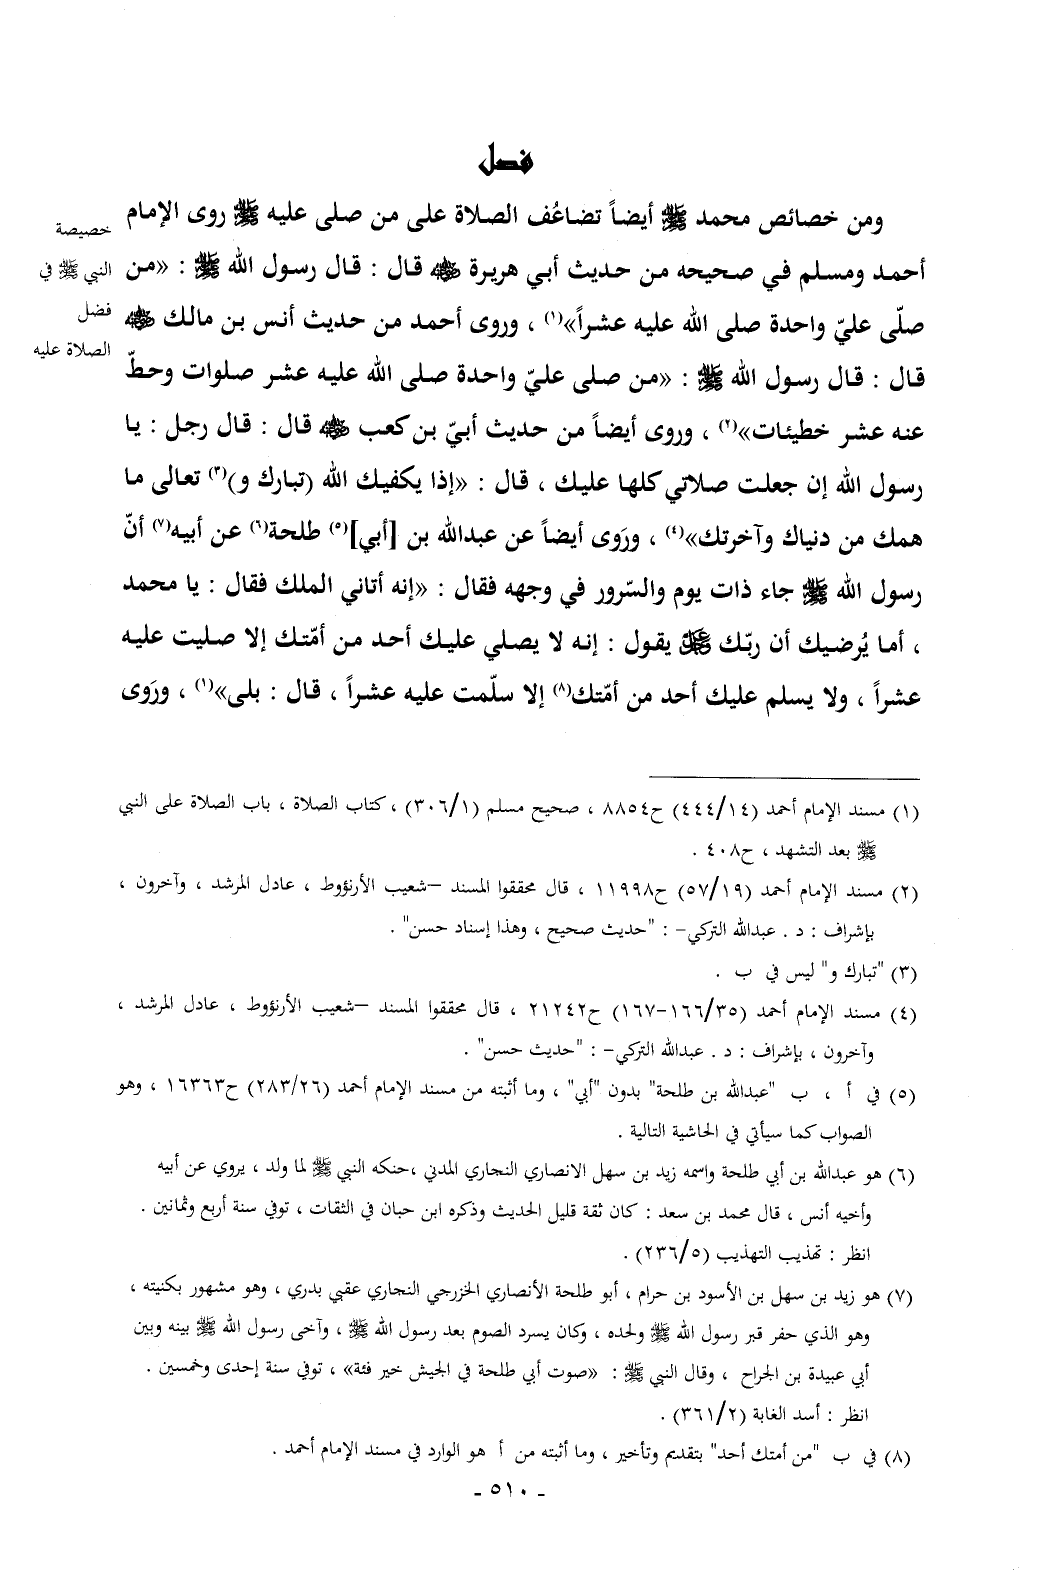 فصل
ومن خصائص محمد ﷺ أيضاً تضاعُف الصلاة على من صلى عليه ﷺ روى الإمام
أحمد ومسلم في صحيحه من حديث أبي هريرة ﵁ قال : قال رسول الله ﷺ : «من
صلّى عليّ واحدة صلى الله عليه عشراً»(١) ، وروى أحمد من حديث أنس بن مالك ﵁
قال : قال رسول الله ﷺ : «من صلى عليّ واحدة صلى الله عليه عشر صلوات وحطّ
عنه عشر خطيئات»(٢) ، وروى أيضاً من حديث أبيّ بن كعب ﵁ قال : قال رجل : يا
رسول الله إن جعلت صلاتي كلها عليك ، قال : «إذا يكفيك الله (تبارك و)(٣) تعالى ما
همك من دنياك وآخرتك»(٤) ، ورَوى أيضاً عن عبدالله بن [أبي](٥) طلحة(٦) عن أبيه(٧) أنّ
رسول الله ﷺ جاء ذات يوم والسّرور في وجهه فقال : «إنه أتاني الملك فقال : يا محمد
، أما يُرضيك أن ربّك ﷻ يقول : إنه لا يصلي عليك أحد من أمّتك إلا صليت عليه
عشراً ، ولا يسلم عليك أحد من أمّتك(٨) إلا سلّمت عليه عشراً ، قال : بلى»(١) ، ورَوى
خصيصة
النبي ﷺ في
فضل
الصلاة عليه
(١) مسند الإمام أحمد (٤٤٤/١٤) ح٨٨٥٤ ، صحيح مسلم (٣٠٦/١) ، كتاب الصلاة ، باب الصلاة على النبي
ﷺ بعد التشهد ، ح٤٠٨ .
(٢) مسند الإمام أحمد (٥٧/١٩) ح١١٩٩٨ ، قال محققوا المسند –شعيب الأرنؤوط ، عادل المرشد ، وآخرون ،
بإشراف : د . عبدالله التركي– : "حديث صحيح ، وهذا إسناد حسن" .
(٣) "تبارك و" ليس في ب .
(٤) مسند الإمام أحمد (١٦٦/٣٥–١٦٧) ح٢١٢٤٢ ، قال محققوا المسند –شعيب الأرنؤوط ، عادل المرشد ،
وآخرون ، بإشراف : د . عبدالله التركي– : "حديث حسن" .
(٥) في أ ، ب "عبدالله بن طلحة" بدون "أبي" ، وما أثبته من مسند الإمام أحمد (٢٨٣/٢٦) ح١٦٣٦٣ ، وهو
الصواب كما سيأتي في الحاشية التالية .
(٦) هو عبدالله بن أبي طلحة واسمه زيد بن سهل الانصاري النجاري المدني ،حنكه النبي ﷺ لما ولد ، يروي عن أبيه
وأخيه أنس ، قال محمد بن سعد : كان ثقة قليل الحديث وذكره ابن حبان في الثقات ، توفي سنة أربع وثمانين .
انظر : تهذيب التهذيب (٢٣٦/٥) .
(٧) هو زيد بن سهل بن الأسود بن حرام ، أبو طلحة الأنصاري الخزرجي النجاري عقبي بدري ، وهو مشهور بكنيته ،
وهو الذي حفر قبر رسول الله ﷺ ولحده ، وكان يسرد الصوم بعد رسول الله ﷺ ، وآخى رسول الله ﷺ بينه وبين
أبي عبيدة بن الجراح ، وقال النبي ﷺ : «صوت أبي طلحة في الجيش خير فئة» ، توفي سنة إحدى وخمسين .
انظر : أسد الغابة (٣٦١/٢) .
(٨) في ب "من أمتك أحد" بتقديم وتأخير ، وما أثبته من أ هو الوارد في مسند الإمام أحمد .
- ٥١٠ -